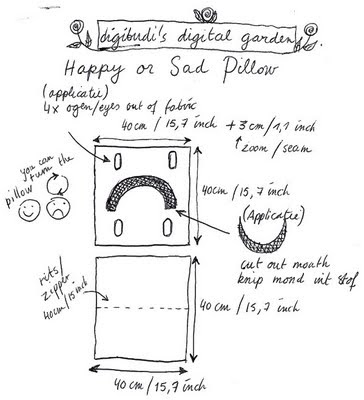 digibudi's digital garden
Happy or Sad Pillow
(applicatie)
4x ogen/eyes out of fabric
40cm / 15,7 inch + 3cm / 1,1 inch
zoom / seam
you can
turn the
pillow
40cm / 15,7 inch
(Applicatie)
cut out mouth
knip mond uit stof
rits/
zipper
40cm/15 inch
40 cm / 15,7 inch
40 cm / 15,7 inch